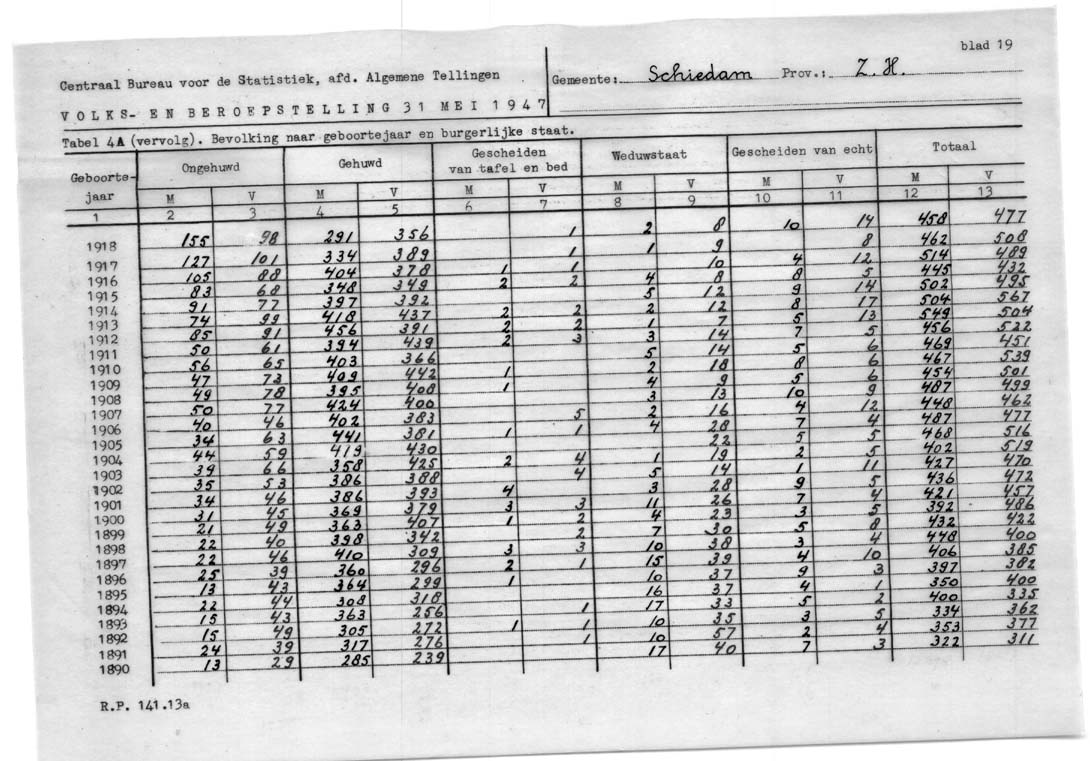 blad 19
Centraal Bureau voor de Statistiek, afd. Algemene Tellingen Gemeente: Schiedam Prov.: Z. H.
VOLKS- EN BEROEPSTELLING 31 MEI 1947
Tabel 4A (vervolg). Bevolking naar geboortejaar en burgerlijke staat.
Geboorte-jaar Ongehuwd Gehuwd Gescheiden van tafel en bed Weduwstaat Gescheiden van echt Totaal
M V M V M V M V M V M V
1 2 3 4 5 6 7 8 9 10 11 12 13
1918 155 98 291 356 1 2 8 10 14 458 477
1917 127 101 334 389 1 1 9 8 462 508
1916 105 88 404 378 1 1 10 4 12 514 489
1915 83 68 348 349 2 2 4 8 8 5 445 432
1914 91 77 397 392 5 12 9 14 502 495
1913 74 99 418 437 2 2 2 12 8 17 504 567
1912 85 91 456 391 2 2 1 7 5 13 549 504
1911 50 61 394 439 2 3 3 14 7 5 456 522
1910 56 65 403 366 5 14 5 6 469 451
1909 47 73 409 442 1 2 18 8 6 467 539
1908 49 78 395 408 1 4 9 5 6 454 501
1907 50 77 424 400 3 13 10 9 487 499
1906 40 46 402 383 5 2 16 4 12 448 462
1905 34 63 441 381 1 1 4 28 7 4 487 477
1904 44 59 419 430 22 5 5 468 516
1903 39 66 358 425 2 4 1 19 2 5 402 519
1902 35 53 386 388 4 5 14 1 11 427 470
1901 34 46 386 393 4 3 28 9 5 436 472
1900 31 45 369 379 3 3 11 26 7 4 421 457
1899 21 49 363 407 1 2 4 23 3 5 392 486
1898 22 40 398 342 2 7 30 5 8 432 422
1897 22 46 410 309 3 3 10 38 3 4 448 400
1896 25 39 360 296 2 1 15 39 4 10 406 385
1895 13 43 364 299 1 10 37 9 3 397 382
1894 22 44 308 318 16 37 4 1 350 400
1893 15 43 363 256 1 17 33 5 2 400 335
1892 15 49 305 272 1 1 10 35 3 5 334 362
1891 24 39 317 276 1 10 57 2 4 353 377
1890 13 29 285 239 17 40 7 3 322 311
R.P. 141.13a